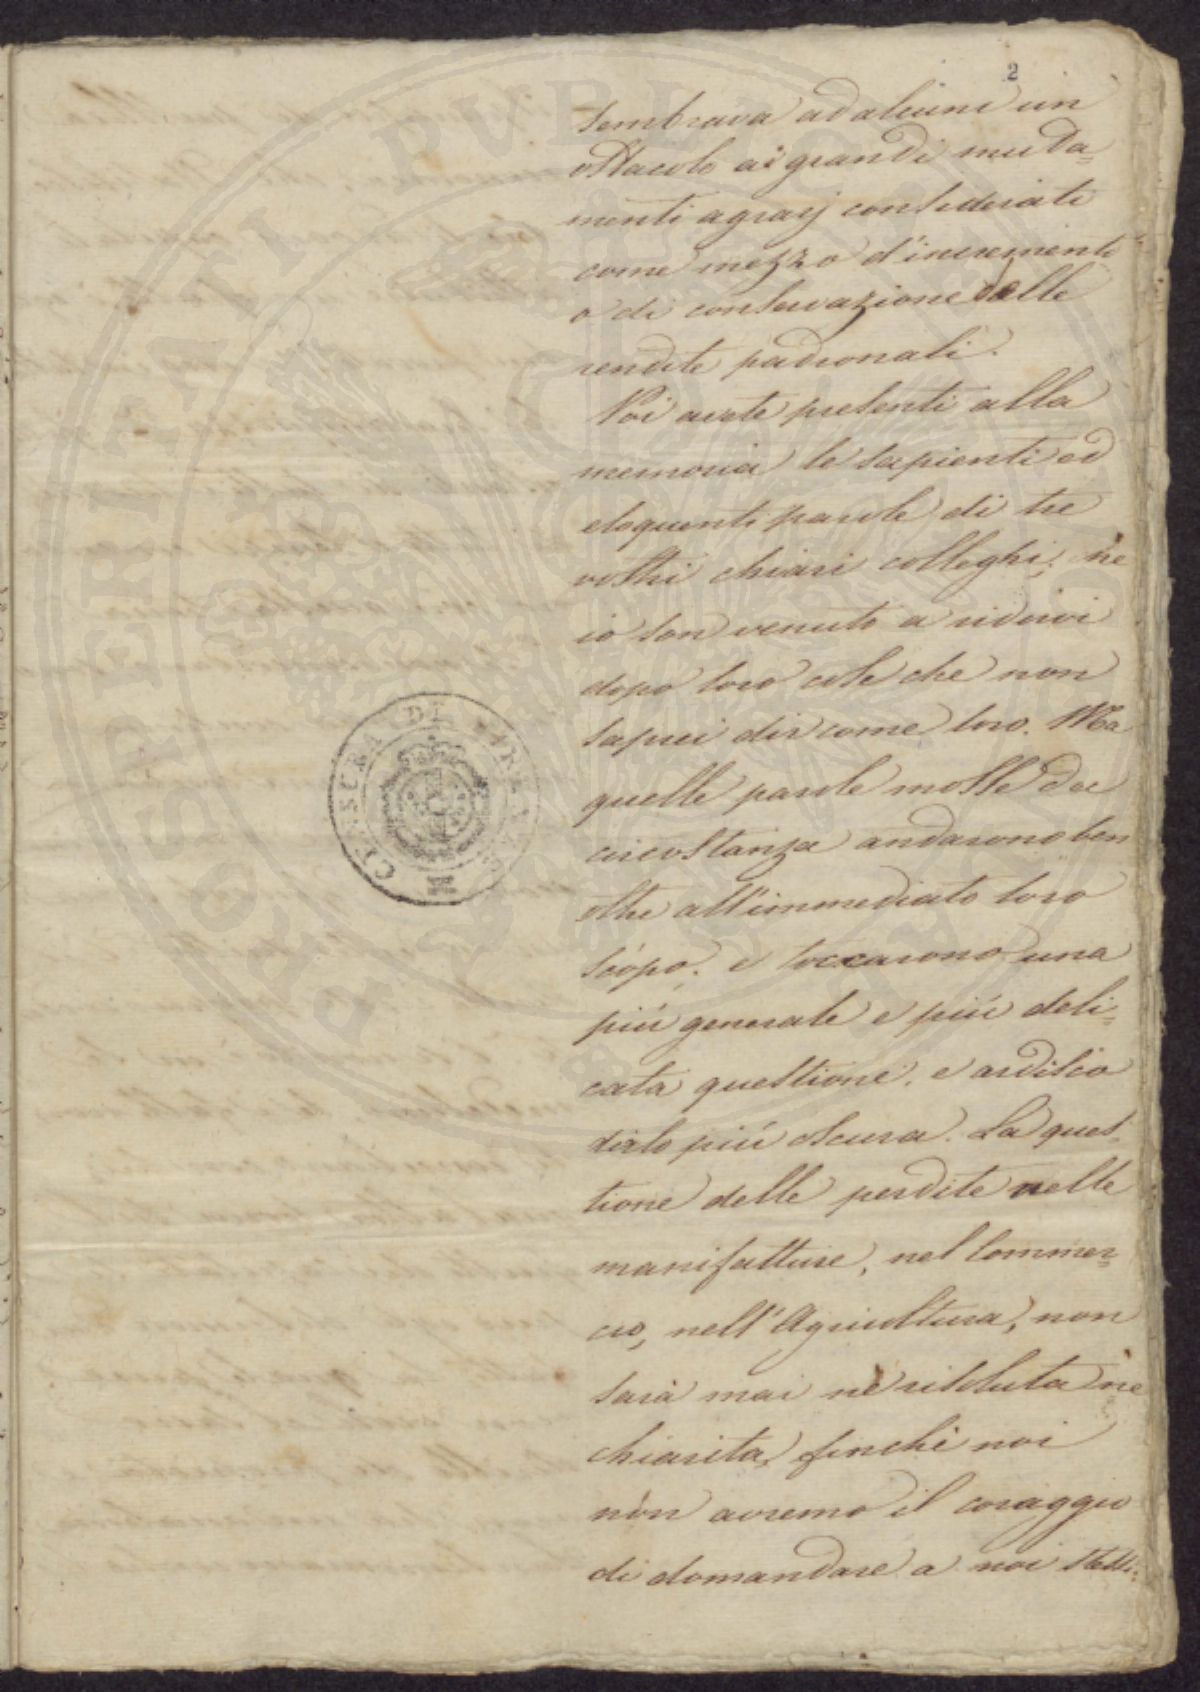 2
sembrava ad alcuni un
ostacolo ai grandi muta=
menti agrarj considerati
come mezzo d'incremento
o di conservazione delle
rendite padronali.
Voi avete presenti alla
memoria le sapienti ed
eloquenti parole di tre
vostri chiari colleghi; nè
io son venuto a ridirvi
dopo loro cose che non
saprei dir come loro. Ma
quelle parole mosse da
circostanza andarono ben
oltre all'immediato loro
scopo; e toccarono una
più generale e più deli=
cata questione, e ardisco
dirlo più oscura. La ques=
tione delle perdite nelle
manifatture, nel Commer=
cio, nell'Agricoltura, non
sarà mai nè risoluta nè
chiarita, finchè noi
non avremo il coraggio
di domandare a noi stessi:
CENSURA DI FIRENZE
PROSPERITATI PUBLICAE